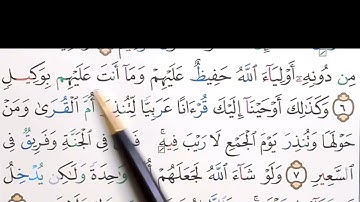 مِن دُونِهِۦٓ أَوْلِيَآءَ ٱللَّهُ حَفِيظٌ عَلَيْهِمْ وَمَآ أَنتَ عَلَيْهِم بِوَكِيلٍ
٦ وَكَذَٰلِكَ أَوْحَيْنَآ إِلَيْكَ قُرْءَانًا عَرَبِيًّا لِّتُنذِرَ أُمَّ ٱلْقُرَىٰ وَمَنْ
حَوْلَهَا وَتُنذِرَ يَوْمَ ٱلْجَمْعِ لَا رَيْبَ فِيهِ ۚ فِى ٱلْجَنَّةِ وَفَرِيقٌ فِى
ٱلسَّعِيرِ ٧ وَلَوْ شَآءَ ٱللَّهُ لَجَعَلَهُمْ وَٰحِدَةً وَلَٰكِن يُدْخِلُ